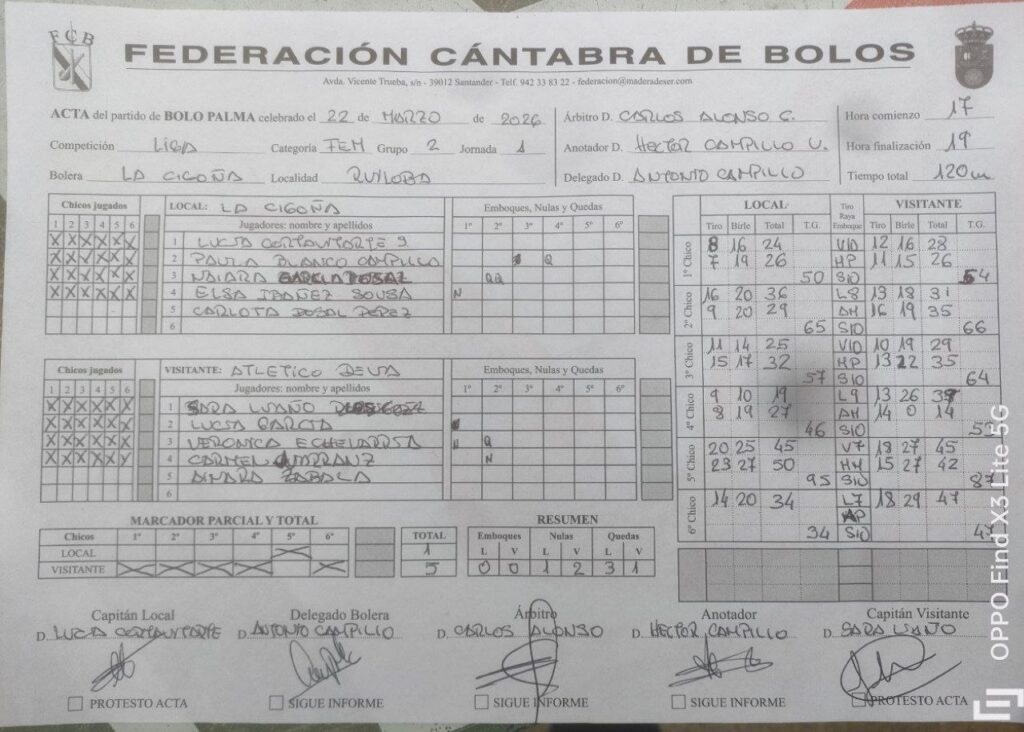 FCB
FEDERACIÓN CÁNTABRA DE BOLOS
Avda. Vicente Trueba, s/n - 39012 Santander - Telf. 942 33 83 22 - federacion@maderadeser.com
ACTA del partido de BOLO PALMA celebrado el 22 de MARZO de 2026
Competición LIGA Categoría FEM Grupo 2 Jornada 1
Bolera LA CIGOÑA Localidad RUILOBA
Árbitro D. CARLOS ALONSO C.
Anotador D. HECTOR CAMPILLO V.
Delegado D. ANTONIO CAMPILLO
Hora comienzo 17
Hora finalización 19
Tiempo total 120m
Chicos jugados LOCAL: LA CIGOÑA Emboques, Nulas y Quedas
1 2 3 4 5 6 Jugadores: nombre y apellidos 1º 2º 3º 4º 5º 6º
X X X X X X 1 LUCIA
X X X X X X 2 PAULA BLANCO CAMPILLO Q
X X X X X X 3 NAIARA QQ
X X X X X X 4 ELSA IBAÑEZ SOUSA N
5 CARLOTA DOSAL PEREZ
6
Chicos jugados VISITANTE: ATLETICO DEVA Emboques, Nulas y Quedas
1 2 3 4 5 6 Jugadores: nombre y apellidos 1º 2º 3º 4º 5º 6º
X X X X X X 1 SARA
X X X X X X 2 LUCIA GARCIA
X X X X X X 3 VERONICA ECHEVARRIA N Q
X X X X X X 4 CARMEN N
5 AINARA ZABALA
6
MARCADOR PARCIAL Y TOTAL
Chicos 1º 2º 3º 4º 5º 6º TOTAL
LOCAL X 1
VISITANTE X X X X X 5
RESUMEN
Emboques Nulas Quedas
L V L V L V
0 0 1 2 3 1
LOCAL Tiro Raya Emboque VISITANTE
Tiro Birle Total T.G. Tiro Birle Total T.G.
1º Chico
8 16 24 V10 12 16 28
7 19 26 MP 11 15 26
50 S10 54
2º Chico
16 20 36 L8 13 18 31
9 20 29 AM 16 19 35
65 S10 66
3º Chico
11 14 25 V10 10 19 29
15 17 32 MP 13 22 35
57 S10 64
4º Chico
9 10 19 L9 13 26
8 19 27 AM 14 0 14
46 S10
5º Chico
20 25 45 V7 18 27 45
23 27 50 15 27 42
95 S10 87
6º Chico
14 20 34 L7 18 29 47
34 S10
Capitán Local Delegado Bolera Árbitro Anotador Capitán Visitante
D. LUCIA D. ANTONIO CAMPILLO D. CARLOS ALONSO D. HECTOR CAMPILLO D. SARA
PROTESTO ACTA SIGUE INFORME SIGUE INFORME SIGUE INFORME PROTESTO ACTA
OPPO Find X3 Lite 5G